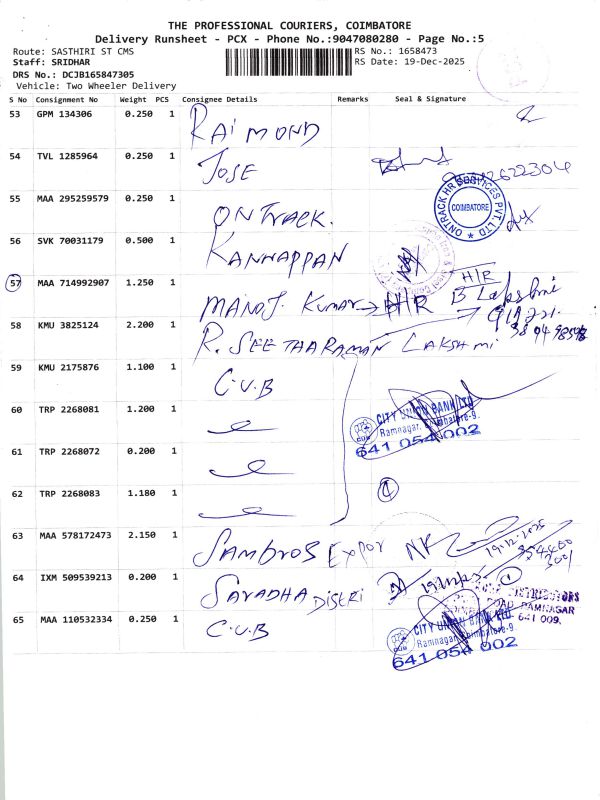 THE PROFESSIONAL COURIERS, COIMBATORE
Delivery Runsheet - PCX - Phone No.:9047080280 - Page No.:5
Route: SASTHIRI ST CMS
RS No.: 1658473
Staff: SRIDHAR
RS Date: 19-Dec-2025
DRS No.: DCJB165847305
Vehicle: Two Wheeler Delivery
S No Consignment No Weight PCS Consignee Details Remarks Seal & Signature
53 GPM 134306 0.250 1 RAIMOND
54 TVL 1285964 0.250 1 JOSE
55 MAA 295259579 0.250 1 ONTRACK.
ONTRACK HR SERVICES PVT. LTD
COIMBATORE
56 SVK 70031179 0.500 1 KANNAPPAN
57 MAA 714992907 1.250 1 MANOJ. KUMAR → H/R B Lakshmi
H/R
58 KMU 3825124 2.200 1 R. SEETHARAMAN LAKSHMI
59 KMU 2175876 1.100 1 C.U.B
60 TRP 2268081 1.200 1
CITY UNION BANK LTD
Ramnagar, Coimbatore-9.
641 054 002
61 TRP 2268072 0.200 1
62 TRP 2268083 1.180 1
63 MAA 578172473 2.150 1 SAMBROS EXPOR
19.12.2025
64 IXM 509539213 0.200 1 SARADHA DISTRI
DISTRIBUTORS
ROAD, RAMNAGAR
641 009.
65 MAA 110532334 0.250 1 C.U.B
CITY UNION BANK LTD
Ramnagar, Coimbatore-9.
641 054 002